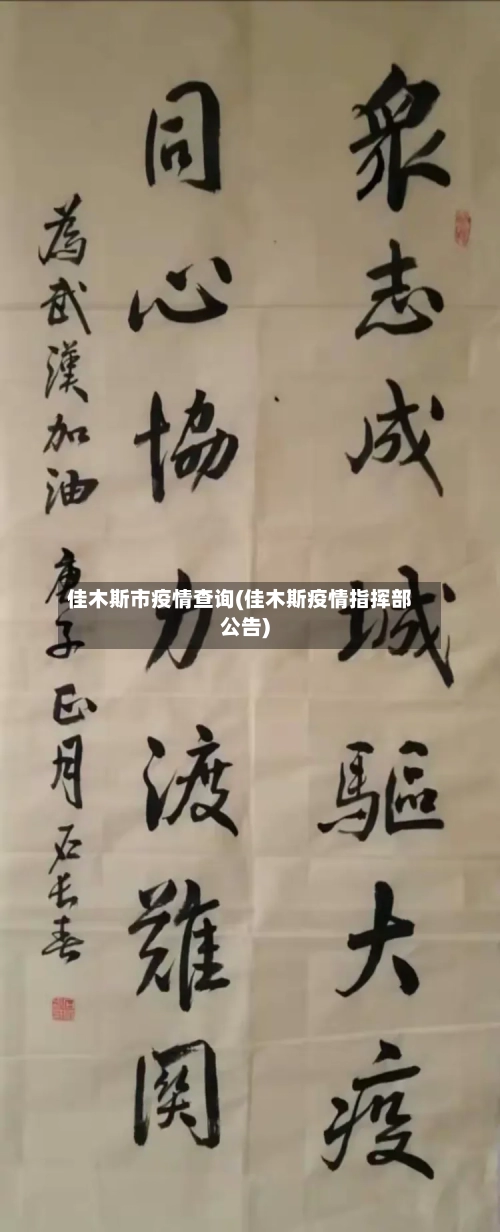 眾志成城驅大疫
同心協力渡難關
為武漢加油 庚子正月 石長春
佳木斯市疫情查询(佳木斯疫情指挥部
公告)